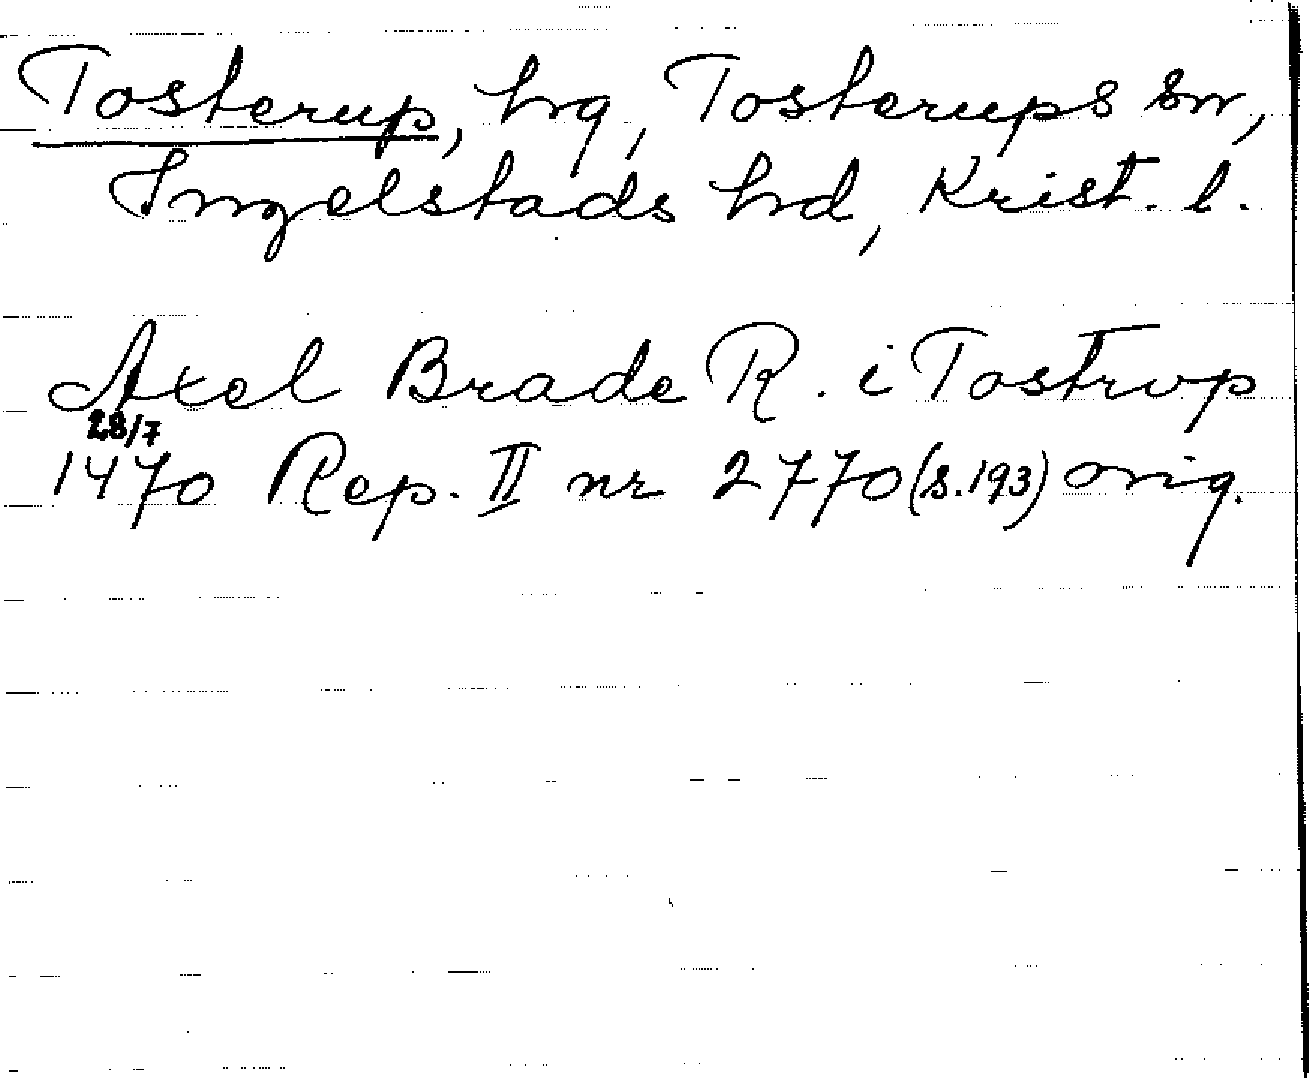 Tosterup, hrg, Tosterups sn,
Ingelstads hrd, Krist. l.
Axel Brade R. i Tostrvp
28/7
1470 Rep. II nr 2770 (s. 193) orig.